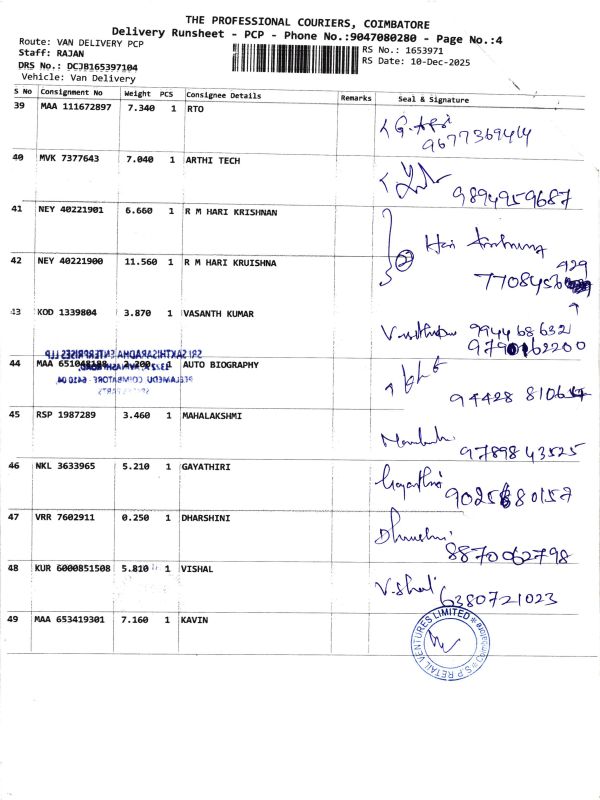 THE PROFESSIONAL COURIERS, COIMBATORE
Delivery Runsheet - PCP - Phone No.:9047080280 - Page No.:4
Route: VAN DELIVERY PCP
Staff: RAJAN
DRS No.: DCJB165397104
Vehicle: Van Delivery
RS No.: 1653971
RS Date: 10-Dec-2025
S No Consignment No Weight PCS Consignee Details Remarks Seal & Signature
39 MAA 111672897 7.340 1 RTO
9677369414
40 MVK 7377643 7.040 1 ARTHI TECH
9894959687
41 NEY 40221901 6.660 1 R M HARI KRISHNAN
2 Hari
42 NEY 40221900 11.560 1 R M HARI KRUISHNA
929
7708456
43 KOD 1339804 3.870 1 VASANTH KUMAR
9944686321
9790162200
SRI SAKTHISARADHA ENTERPRISES LLP
44 MAA 651048188 1 AUTO BIOGRAPHY
PEELAMEDU COIMBATORE - 6410 04.
94428
45 RSP 1987289 3.460 1 MAHALAKSHMI
9789843525
46 NKL 3633965 5.210 1 GAYATHIRI
Gayathri
47 VRR 7602911 0.250 1 DHARSHINI
8870062798
48 KUR 6000851508 5.810 1 VISHAL
Vishal 6380721023
49 MAA 653419301 7.160 1 KAVIN
S P RETAIL VENTURES LIMITED * Coimbatore *